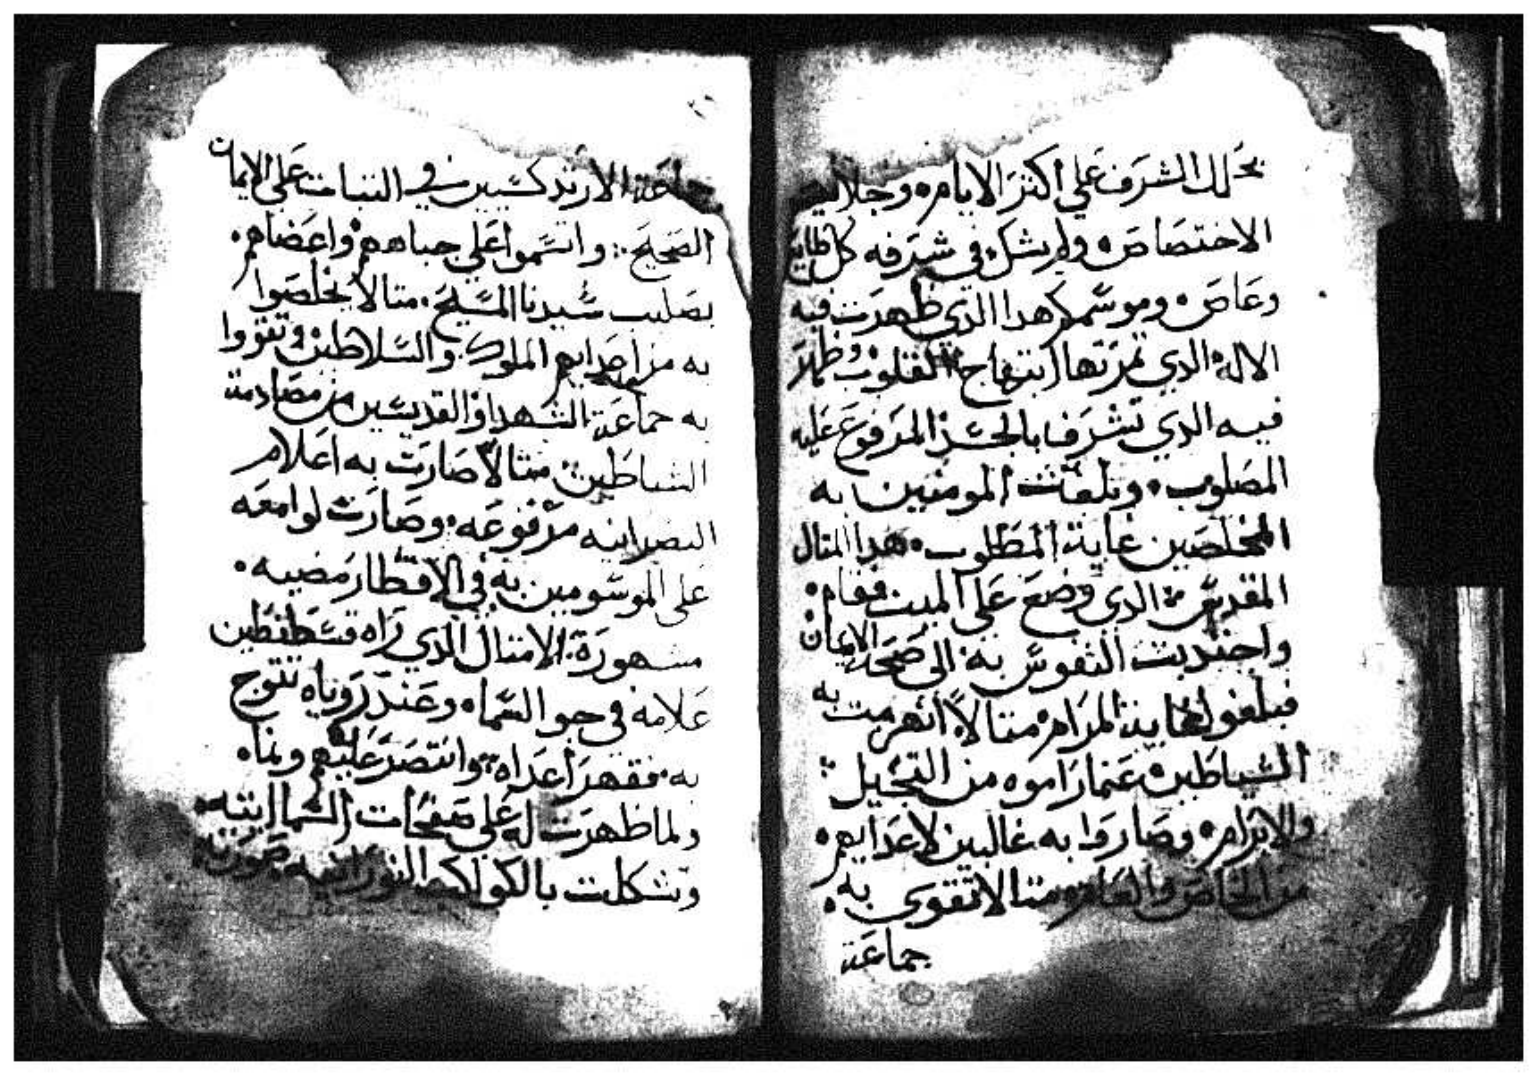 تجلل الشرف علي اكثر الايام ه وجلاليت
الاختصاص ه ولم يشك في شرفه كل طايع
وعاص ه وموسمكم هدا الدي ظهرت فيه
الالاه الدي تمرتها ابتهاج القلوب وظهر
فيه الدي تشرف بالخشب المرفوع عليه
المصلوب ه وبلغت المومنين به
المخلصين غاية المطلوب ه هدا المتال
المقدس الدي وضع علي الميت فقام ه
واجتدبت النفوس به الي صحة الايمان
فبلغوا نهاية المرام ه متالاً انهزمت به
الشياطين عنما راموه من التخيل
والابرام ه وصاروا به غالبين لاعدايهم ه
من الخاص والعام ه متالا تقوي به ه
جماعة
جماعة الارتدكسيين في التبات علي الايمان
الصحيح واتسموا علي جباههم واعضاهم ه
بصليب سيدنا المسيح ه متالا يخلصوا
به من اعدايهم الملوك والسلاطين ه وتتووا
به جماعة الشهدا والقديسين من مصادمة
الشياطين متالاً صارت به اعلام
النصرانيه مرفوعه ه وصارت لوامعه
علي الموسومين به في الاقطار مضيه ه
مشهورة الامتال الدي راه قسطنطين
علامه في جو السماه وعند روياه تتوج
به فقهر اعداه وانتصر عليهم وبناه
ولما ظهرت له علي صفحات السما ايته ه
وتشكلت بالكواكب النورانيه صورته